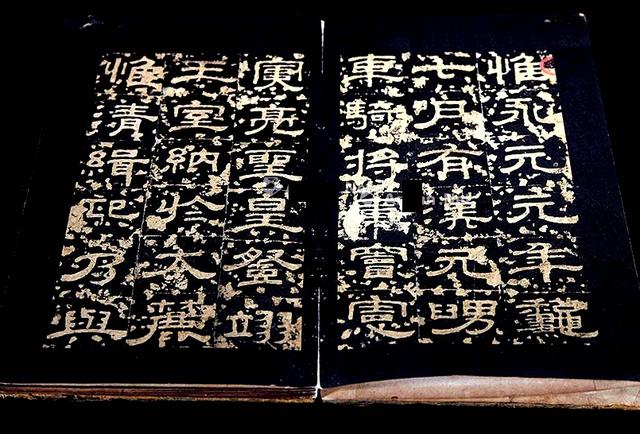 惟永元元年龝
七月有漢元舅
車騎將軍竇憲
寅亮聖皇登翊
王室納於大麓
惟清緝熙乃與